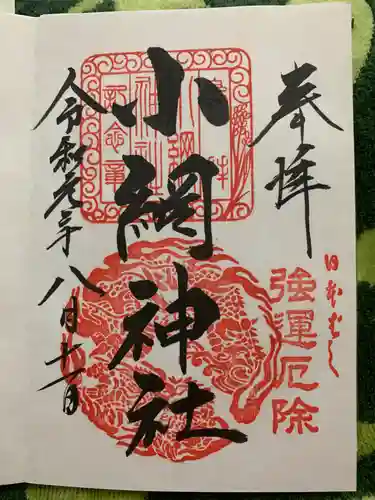 奉拝
日本ばし
強運厄除
小網神社
令和元年八月十一日